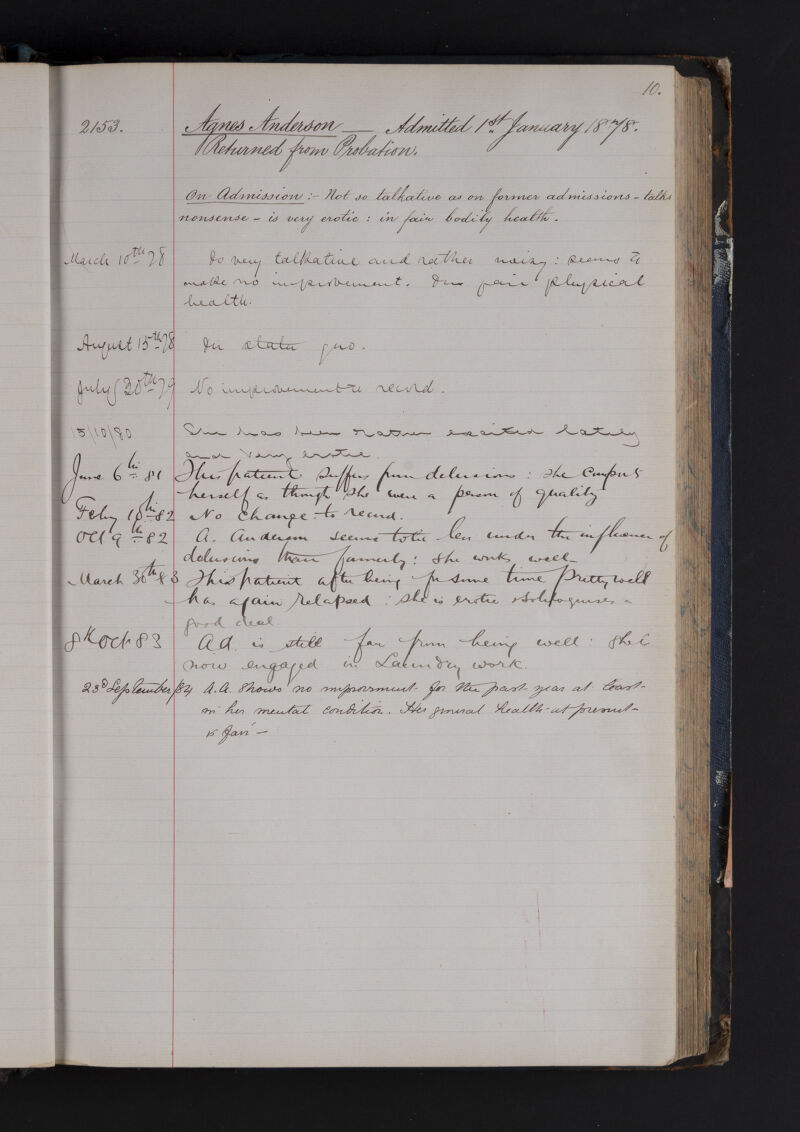 10.
2153. Agnes Anderson — Admitted 1st January 1878.
Returned from Probation.
On Admission :- Not so talkative as on former admissions - talks
nonsense - is very erotic : in fair bodily health.
March 10th 78 Is very talkative and rather noisy : seems to
make no improvement. In fair physical
health.
August 15th 78 In statu quo.
July 30th 79 No improvement to record.
15/10/80 She has been rather excited lately
and very erotic.
June 6th 81 This patient suffers from delusions : she comports
herself as though she were a person of quality
Feby 18th 82 No change to record.
Oct 9th 82 A. Anderson seems to be less under the influence of
delusions than formerly : she works well
March 30th 83 This patient after being for some time pretty well
has again relapsed : she is erotic & soliloquises a
good deal
8th Oct 83 A.A. is still far from being well : she is
now engaged in Laundry work.
23d September/84 A.A. shows no improvement for the past year at least
in her mental condition. Her general health at present
is fair —